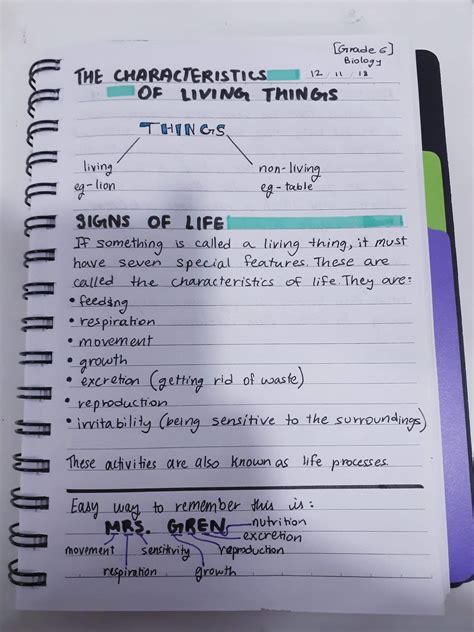 [Grade 6]
Biology
THE CHARACTERISTICS 12/11/18
OF LIVING THINGS
THINGS
living non-living
eg-lion eg-table
SIGNS OF LIFE
If something is called a living thing, it must
have seven special features. These are
called the characteristics of life. They are:
• feeding
• respiration
• movement
• growth
• excretion (getting rid of waste)
• reproduction
• irritability (being sensitive to the surroundings)
These activities are also known as life processes.
Easy way to remember this is:
MRS. GREN nutrition
excretion
movement sensitivity reproduction
respiration growth